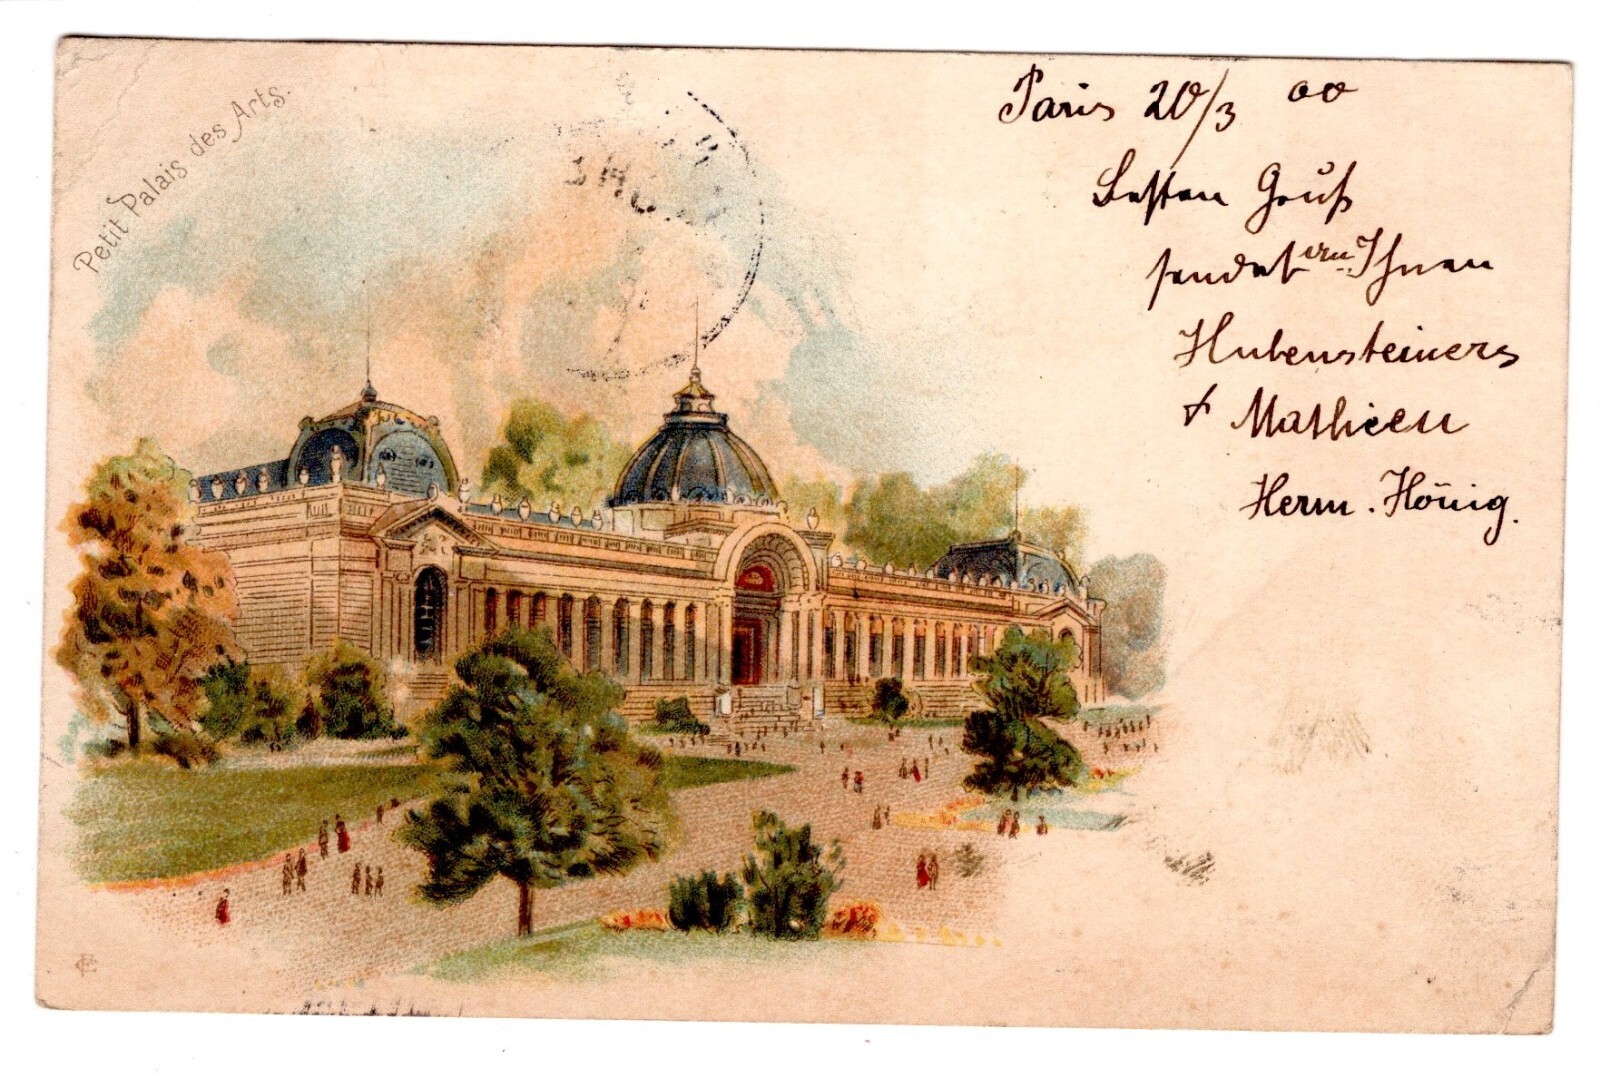 Petit Palais des Arts.
Paris 20/3 00
Besten Gruß
sendet an Ihnen
Hubensteiners
& Mathieu
Herm. Hönig.